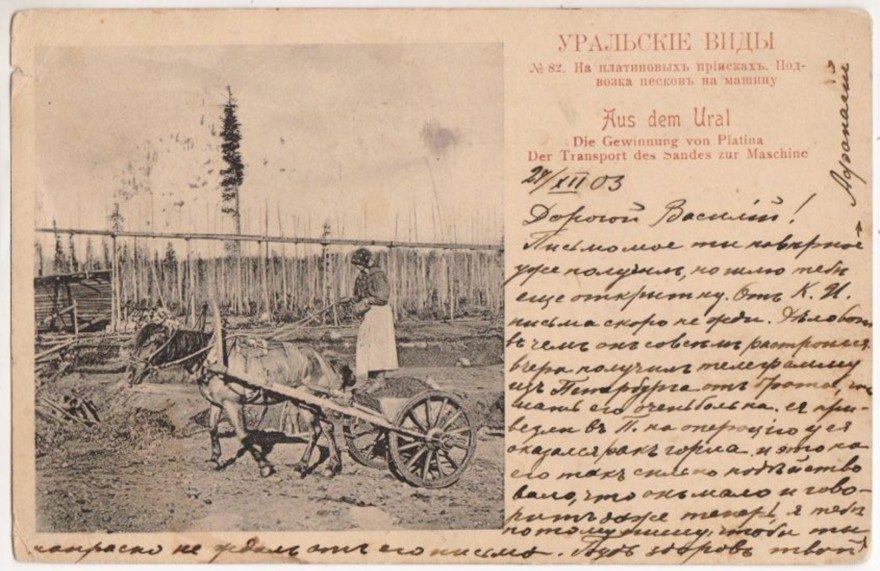 УРАЛЬСКІЕ ВИДЫ
№ 82. На платиновыхъ пріискахъ. Под-
возка песковъ на машину
Aus dem Ural
Die Gewinnung von Platina
Der Transport des Sandes zur Maschine
24/XII 03
Дорогой Василій!
Письмо мое ты наверное
уже получилъ, но шлю тебѣ
еще открытку. Отъ К. И.
письма скоро не жди. Дѣло вотъ
въ чемъ онъ совсѣмъ растроился
вчера получилъ телеграмму
изъ Петербурга отъ брата, что
мать его очень больна. ее при-
везли въ П. на операцію у ея
оказался ракъ горла. и это на
его такъ сильно подѣйство
вало, что онъ мало и гово-
ритъ даже теперь, я тебѣ
потому пишу, чтобы ты
напрасно не ждалъ отъ его письма. Будь здоровъ твой
Афанасій